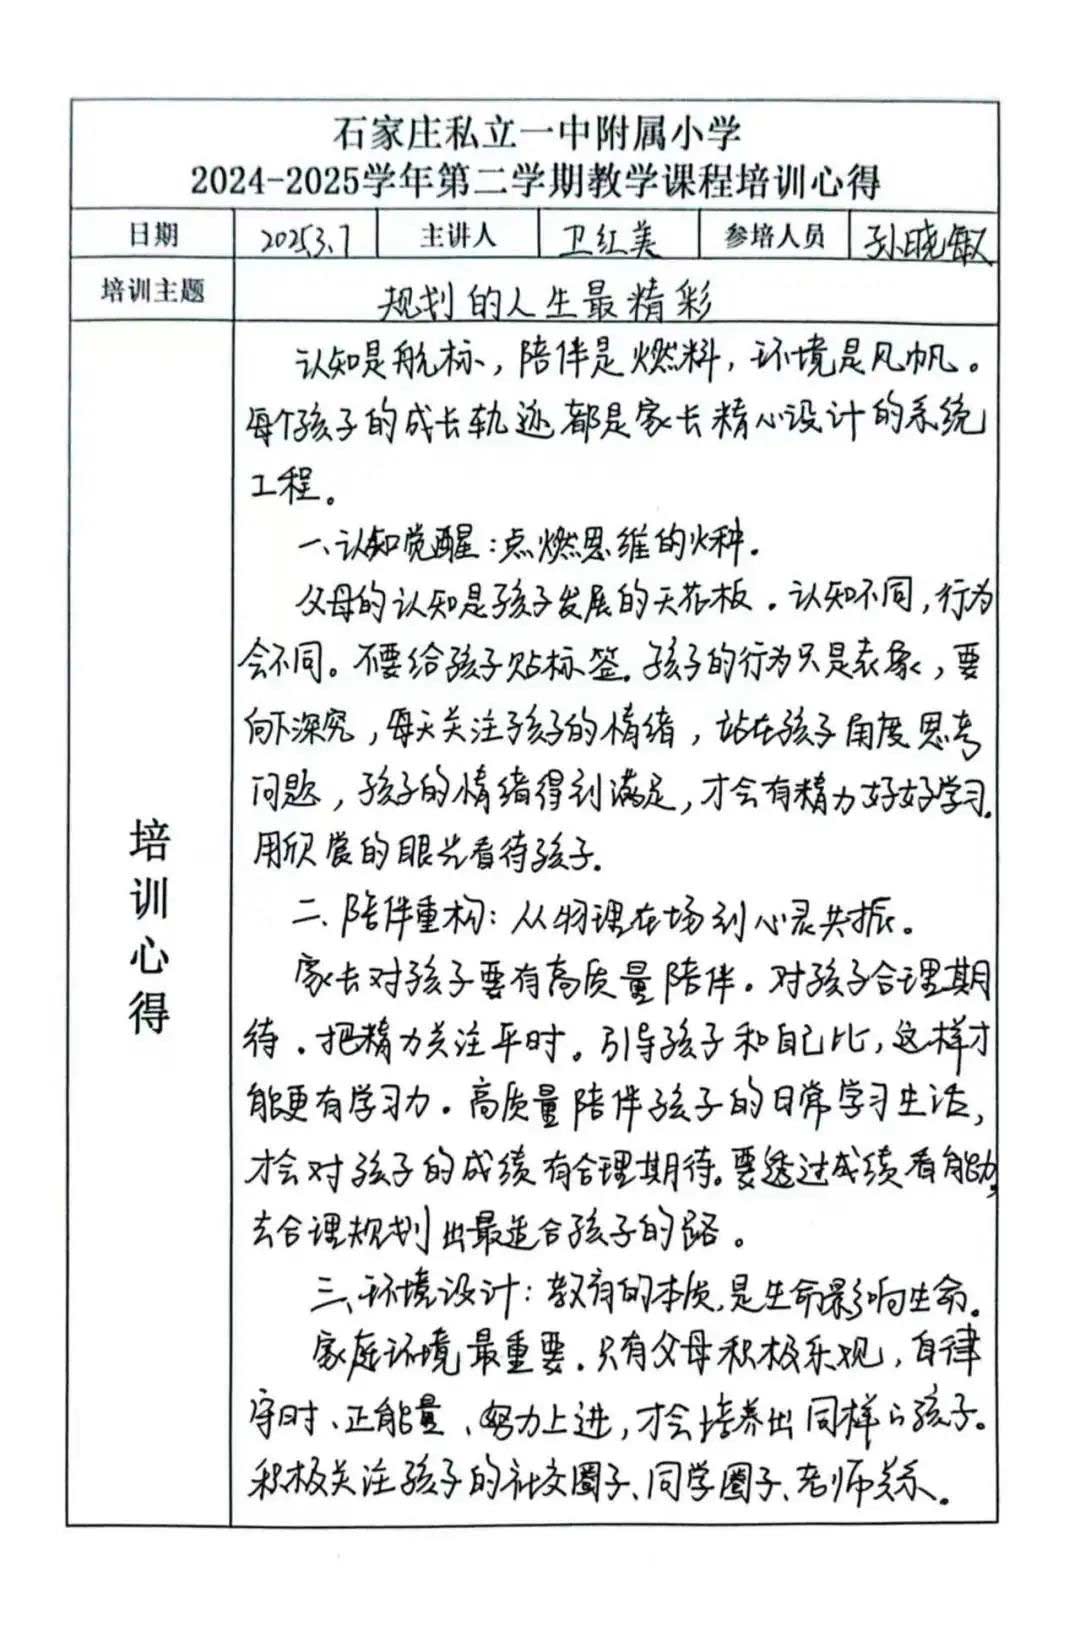 石家庄私立一中附属小学
2024-2025学年第二学期教学课程培训心得
日期 2025.3.7 主讲人 卫红美 参培人员 孙晓敏
培训主题 规划的人生最精彩
培训心得
认知是航标，陪伴是燃料，环境是风帆。
每个孩子的成长轨迹都是家长精心设计的系统
工程。
一、认知觉醒：点燃思维的火种.
父母的认知是孩子发展的天花板。认知不同，行为
会不同。不要给孩子贴标签.孩子的行为只是表象，要
向下深究，每天关注孩子的情绪，站在孩子角度思考
问题，孩子的情绪得到满足，才会有精力好好学习.
用欣赏的眼光看待孩子.
二、陪伴重构：从物理在场到心灵共振。
家长对孩子要有高质量陪伴。对孩子合理期
待。把精力关注平时。引导孩子和自己比，这样才
能更有学习力。高质量陪伴孩子的日常学习生活，
才会对孩子的成绩有合理期待。要透过成绩看能力，
去合理规划出最适合孩子的路。
三、环境设计：教育的本质，是生命影响生命。
家庭环境最重要。只有父母积极乐观，自律
守时、正能量、努力上进，才会培养出同样的孩子。
积极关注孩子的社交圈子、同学圈子、老师关系。